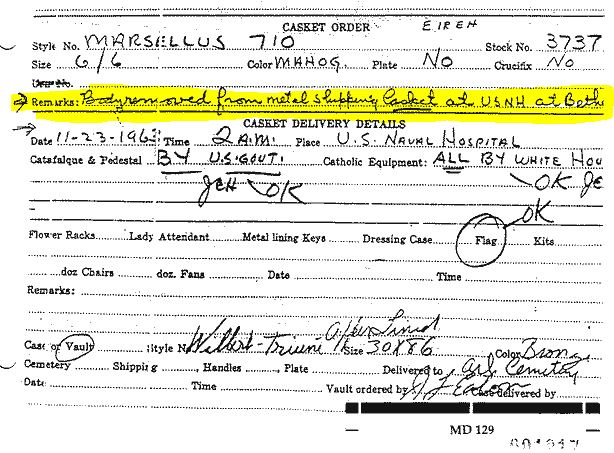 CASKET ORDER EIREH
Style No. MARSELLUS 710 Stock No. 3737
Size 6/6 Color MAHOG. Plate NO Crucifix NO
Remarks: Body removed from metal shipping Casket at USNH at Beth
CASKET DELIVERY DETAILS
Date 11-23-1963 Time 2 A.M. Place U.S. NAVAL HOSPITAL
Catafalque & Pedestal BY U.S. GOVT. Catholic Equipment: ALL BY WHITE HOU
JEH OK OK JE
OK
Flower Racks Lady Attendant Metal lining Keys Dressing Case Flag Kits
doz Chairs doz. Fans Date Time
Remarks:
Case or Vault Style No. Wilbert-Triune Size 30X86 Color Bronz
Cemetery Shipping , Handles , Plate Delivered to Arl. Cemetery
Date Time Vault ordered by Case delivered by
MD 129